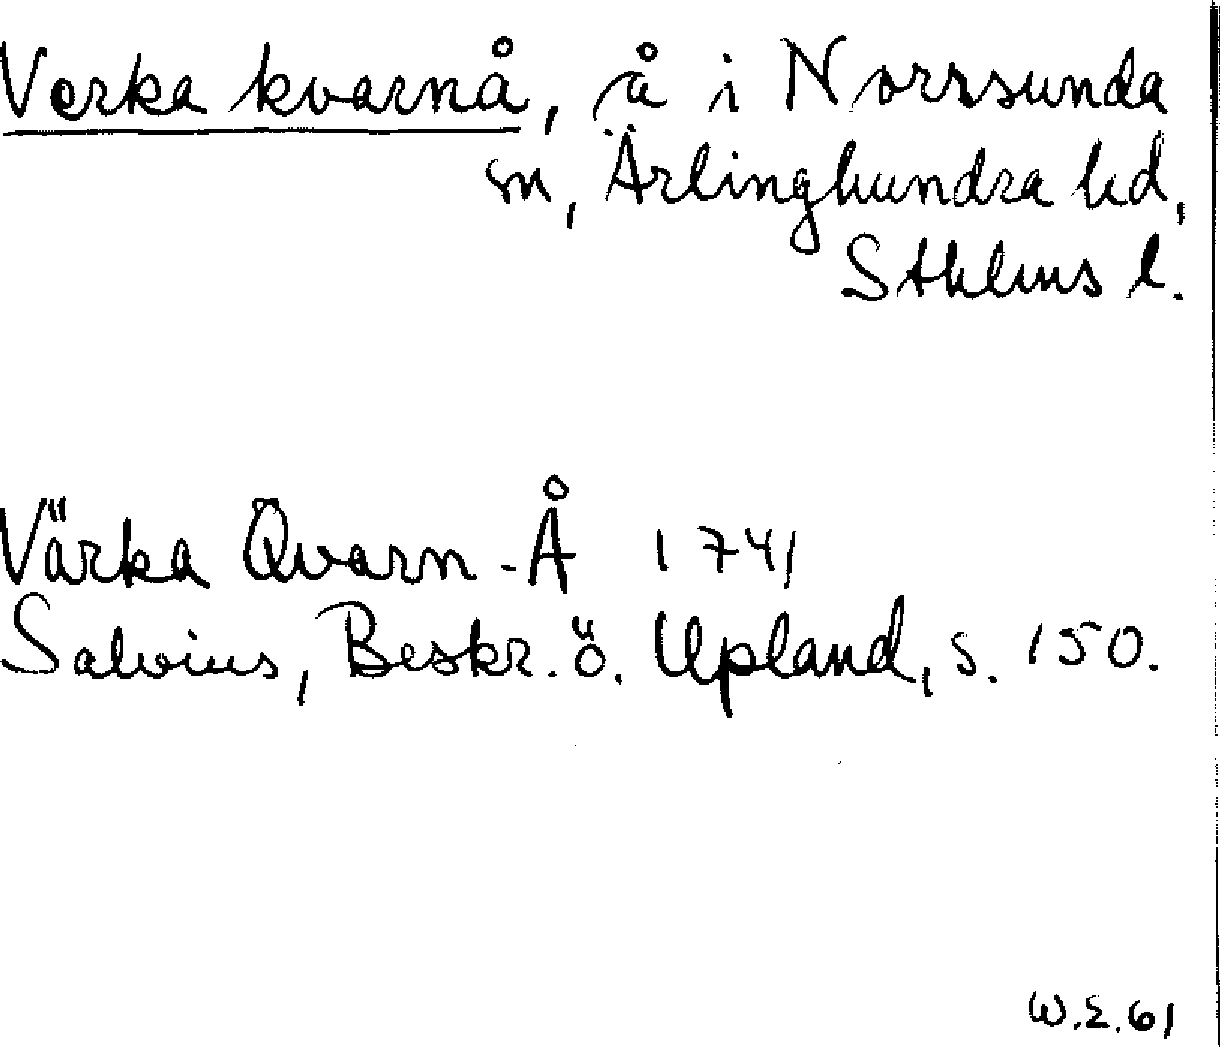 Verka kvarnå, å i Norrsunda
sn, Ärlinghundra hd,
Sthlms l.
Värka Qvarn-Å 1741
Salvius, Beskr. ö. Upland, s. 150.
W.E.61